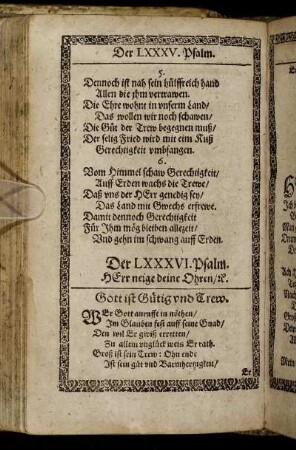 Der LXXXV. Psalm.
5.
Dennoch ist nah sein hülffreich hand
Allen die jhm vertrawen.
Die Ehre wohnt in vnserm Land/
Das wollen wir noch schawen/
Die Güt der Trew begegnen muß/
Der selig Fried wird mit eim Kuß
Gerechtigkeit vmbfangen.
6.
Vom Himmel schaw Gerechtigkeit/
Auff Erden wachs die Trewe/
Daß vns der HErr genedig sey/
Das Land mit Gwechs erfrewe.
Damit dennoch Gerechtigkeit
Für Jhm mög bleiben allezeit/
Vnd gehn im schwang auff Erden.
Der LXXXVI. Psalm.
HErr neige deine Ohren/&c.
Gott ist Gütig vnd Trew.
WEr Gott anrufft in nöthen/
Im Glauben fest auff seine Gnad/
Den wil Er gwiß erretten/
Zu allem vnglück weis Er rath.
Groß ist sein Trew: Ohn ende
Ist sein güt vnd Barmhertzigkeit/
Er